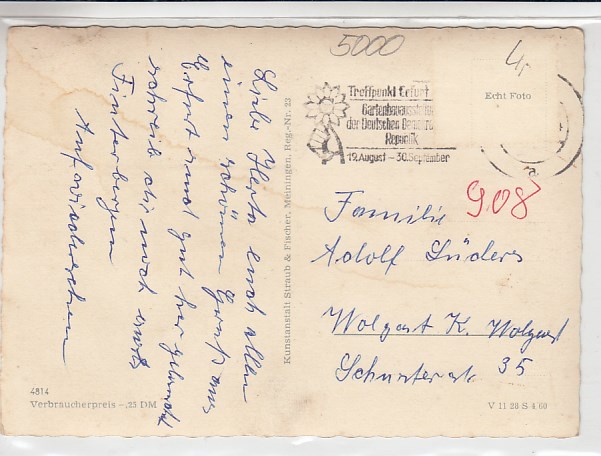 5000
4,-
Treffpunkt Erfurt
Gartenbauausstellung
der Deutschen Demokr
Republik
19. August - 30. September
Echt Foto
9.08
Liebe Herta euch allen
einen schönen Gruß aus
Erfurt sind gut her
schreib dir noch
Finsterbergen
Auf wiedersehen
Familie
Adolf Lüders
Wolgast K. Wolgast
35
Kunstanstalt Straub & Fischer, Meiningen, Reg.-Nr. 23
4814
Verbraucherpreis -,25 DM
V 11 28 S 4 60